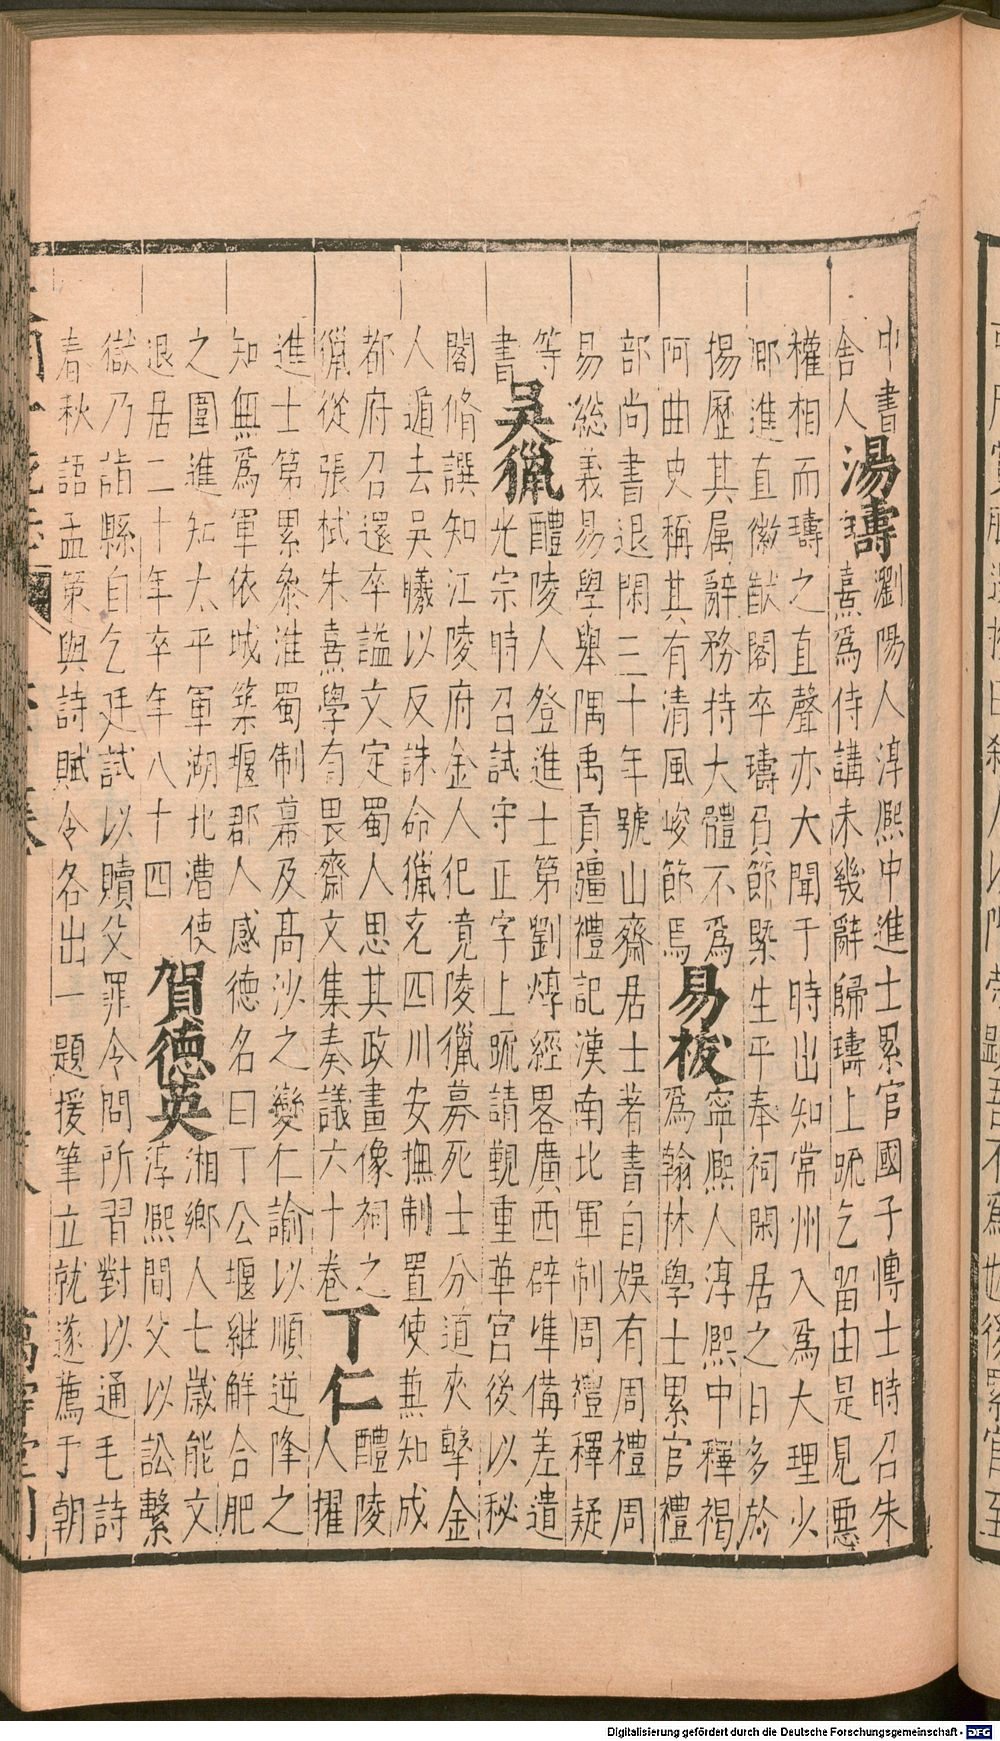 中書
舍人
湯璹
瀏陽人淳熈中進士累官國子博士時召朱
熹爲侍講未幾辭歸璹上疏乞留由是見惡
權相而璹之直聲亦大聞于時出知常州入爲大理少
卿進直徽猷閣卒璹負節槩生平奉祠閑居之日多於
揚歷其属辭務持大體不爲
阿曲史稱其有清風峻節焉
易祓
寧熈人淳熈中釋褐
爲翰林學士累官禮
部尚書退閑三十年號山齋居士著書自娛有周禮周
易総義易學舉隅禹貢疆禮記漢南北軍制周禮釋疑
等
書
吳獵
醴陵人登進士第劉焞經畧廣西辟準備差遣
光宗時召試守正字上疏請覲重華宮後以秘
閣脩譔知江陵府金人犯竟陵獵募死士分道夾擊金
人遁去吳曦以反誅命獵充四川安撫制置使兼知成
都府召還卒謚文定蜀人思其政畫像祠之
獵從張栻朱熹學有畏齋文集奏議六十巻
丁仁
醴陵
人擢
進士第累叅淮蜀制幕及髙沙之變仁諭以順逆降之
知無爲軍依城築堰郡人感德名曰丁公堰継解合肥
之圍進知太平軍湖北漕使
退居二十年卒年八十四
賀德英
湘鄉人七歲能文
淳熈間父以訟繫
獄乃詣縣自乞廷試以贖父罪令問所習對以通毛詩
春秋語孟策與詩賦令各出一題援筆立就遂薦于朝
Digitalisierung gefördert durch die Deutsche Forschungsgemeinschaft - DFG